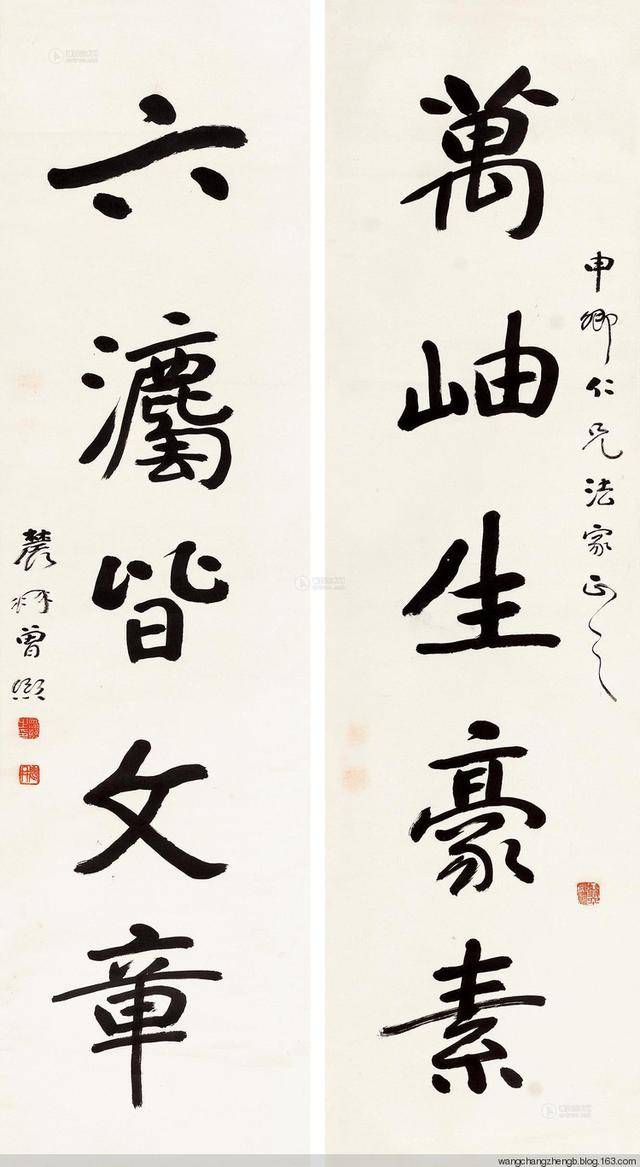 申卿仁兄法家正之
萬岫生豪素
六皆文章
農髯曾熙
wangchangzhengb.blog.163.com